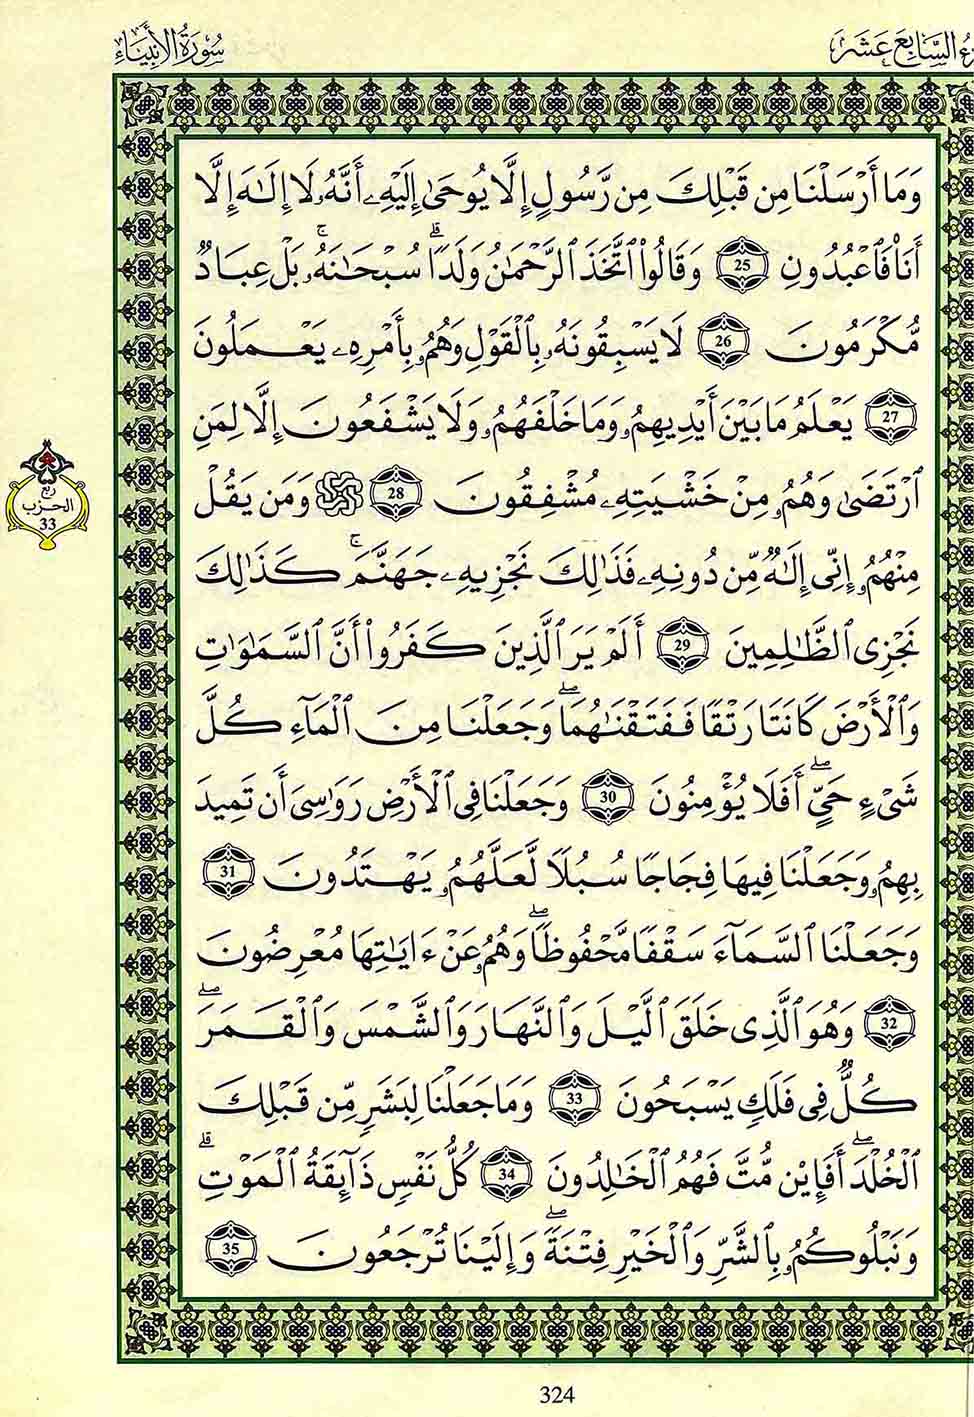 زءُ السَّابِعَ عَشَرَ
سُورَةُ الأَنبِيَاءِ
وَمَا أَرْسَلْنَا مِن قَبْلِكَ مِن رَّسُولٍ إِلَّا يُوحَىٰ إِلَيْهِۦ أَنَّهُۥ لَا إِلَـٰهَ إِلَّا
أَنَا۠ فَٱعْبُدُونِ 25 وَقَالُوا۟ ٱتَّخَذَ ٱلرَّحْمَـٰنُ وَلَدًا ۗ سُبْحَـٰنَهُۥ ۚ بَلْ عِبَادٌ
مُّكْرَمُونَ 26 لَا يَسْبِقُونَهُۥ بِٱلْقَوْلِ وَهُمُۥ بِأَمْرِهِۦ يَعْمَلُونَ
27 يَعْلَمُ مَا بَيْنَ أَيْدِيهِمُۥ وَمَا خَلْفَهُمُۥ وَلَا يَشْفَعُونَ إِلَّا لِمَنِ
ٱرْتَضَىٰ وَهُمُۥ مِنْ خَشْيَتِهِۦ مُشْفِقُونَ 28 وَمَن يَقُلْ
مِنْهُمُۥ إِنِّى إِلَـٰهٌ مِّن دُونِهِۦ فَذَٰلِكَ نَجْزِيهِۦ جَهَنَّمَ ۚ كَذَٰلِكَ
نَجْزِى ٱلظَّـٰلِمِينَ 29 أَلَمْ يَرَ ٱلَّذِينَ كَفَرُوا۟ أَنَّ ٱلسَّمَـٰوَٰتِ
وَٱلْأَرْضَ كَانَتَا رَتْقًا فَفَتَقْنَـٰهُمَا ۖ وَجَعَلْنَا مِنَ ٱلْمَآءِ كُلَّ
شَىْءٍ حَىٍّ ۖ أَفَلَا يُؤْمِنُونَ 30 وَجَعَلْنَا فِى ٱلْأَرْضِ رَوَٰسِىَ أَن تَمِيدَ
بِهِمُۥ وَجَعَلْنَا فِيهَا فِجَاجًا سُبُلًا لَّعَلَّهُمُۥ يَهْتَدُونَ 31
وَجَعَلْنَا ٱلسَّمَآءَ سَقْفًا مَّحْفُوظًا ۖ وَهُمُۥ عَنْ ءَايَـٰتِهَا مُعْرِضُونَ
32 وَهُوَ ٱلَّذِى خَلَقَ ٱلَّيْلَ وَٱلنَّهَارَ وَٱلشَّمْسَ وَٱلْقَمَرَ ۖ
كُلٌّ فِى فَلَكٍ يَسْبَحُونَ 33 وَمَا جَعَلْنَا لِبَشَرٍ مِّن قَبْلِكَ
ٱلْخُلْدَ ۖ أَفَإِي۟ن مُّتَّ فَهُمُ ٱلْخَـٰلِدُونَ 34 كُلُّ نَفْسٍ ذَآئِقَةُ ٱلْمَوْتِ ۗ
وَنَبْلُوكُمُۥ بِٱلشَّرِّ وَٱلْخَيْرِ فِتْنَةً ۖ وَإِلَيْنَا تُرْجَعُونَ 35
ربع
الحزب
33
324